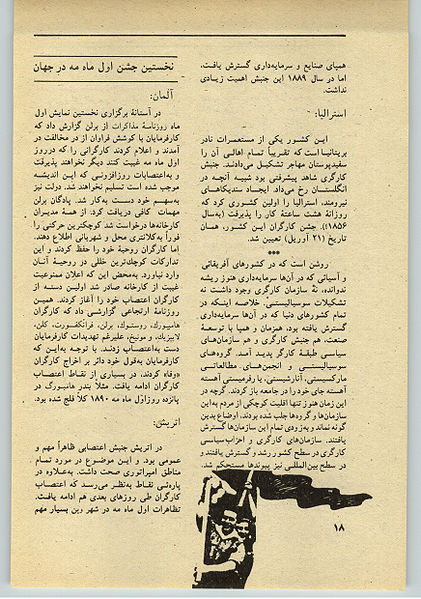 همپای صنایع و سرمایه‌داری گسترش یافت،
اما در سال ۱۸۸۹ این جنبش اهمیت زیادی
نداشت.
استرالیا:
این کشور یکی از مستعمرات نادر
بریتانیا است که تقریباً تمام اهالی آن را
سفیدپوستان مهاجر تشکیل می‌دادند. جنبش
کارگری شاهد پیشرفتی بود شبیه آنچه در
انگلستان رخ می‌داد. ایجاد سندیکاهای
نیرومند، استرالیا را اولین کشوری کرد که
روزانهٔ هشت ساعتهٔ کار را پذیرفت (به‌سال
۱۸۵۶). جشن کارگران این کشور، همان
تاریخ (۲۱ آوریل) تعیین شد.
***
روشن است که در کشورهای آفریقائی
و آسیائی که در آن‌ها سرمایه‌داری هنوز ریشه
ندوانده، نهٔ سازمان کارگری وجود داشت نه
تشکیلات سوسیالیستی. خلاصه اینکه در
تمام کشورهای دنیا که در آن‌ها سرمایه‌داری
گسترش یافته بود، همزمان و همپا با توسعهٔ
صنعت، هم جنبش کارگری و هم سازمان‌های
سیاسی طبقهٔ کارگر پدید آمد. گروه‌های
سوسیالیستی و انجمن‌های مطالعاتی
مارکسیستی، آنارشیستی، یا رفرمیستی آهسته
آهسته جای خود را در جامعه باز کردند. گرچه در
این زمان هنوز تنها اقلیت کوچکی از مردم به این
سازمان‌ها و گروه‌ها جلب شده بودند، اوضاع بدین
گونه نماند و به‌زودی تمام این سازمان‌ها گسترش
یافتند. سازمان‌های کارگری و احزاب سیاسی
کارگری در سطح کشور رشد و گسترش یافتند و
در سطح بین‌المللی نیز پیوندها مستحکم شد.
۱۸
نخستین جشن اول ماه مه در جهان
آلمان:
در آستانهٔ برگزاری نخستین نمایش اول
ماه روزنامهٔ مذاکرات از برلن گزارش داد که
کارفرمایان با کوشش فراوان از در مخالفت در
آمدند و اعلام کردند کارگرانی را که در روز
اول ماه مه غیبت کنند دیگر نخواهند پذیرفت
و به‌اعتصابات روزافزونی که این اندیشه
موجب شده است تسلیم نخواهند شد. دولت نیز
به‌سهم خود دست به‌کار شد. پادگان برلن
مهمات کافی دریافت کرد. از همهٔ مدیران
کارخانه‌ها درخواست شد کوچکترین حرکتی را
فوراً به‌کلانتری محل و شهربانی اطلاع دهند.
اما کارگران روحیهٔ خود را حفظ کردند و این
تدارکات کوچک‌ترین خللی در روحیهٔ آنان
وارد نیاورد. به‌محض این که اعلان ممنوعیت
غیبت از کارخانه صادر شد اولین دسته از
کارگران اعتصاب خود را آغاز کردند. همین
روزنامهٔ ارتجاعی گزارشی داد که کارگران
هامبورگ، روستوک، برلن، فرانکفورت، کلن،
لایپزیک، و مونیخ، علیرغم تهدیدات کارفرمایان
دست به‌اعتصاب زدند. با توجه به‌این که
کارفرمایان به‌قول خود دائر بر اخراج کارگران
«وفا» کردند، در بسیاری از نقاط اعتصاب
کارگران ادامه یافت. مثلاً بندر هامبورگ در
پانزده روز اوّل ماه مه ۱۸۹۰ کلاً فلج شده بود.
اتریش:
در اتریش جنبش اعتصابی ظاهراً مهم و
عمومی بود. و این موضوع در مورد تمام
مناطق امپراتوری صحت داشت. به‌علاوه در
پاره‌ئی نقاط به‌نظر می‌رسد که اعتصاب
کارگران طی روزهای بعدی هم ادامه یافت.
تظاهرات اول ماه مه در شهر وین بسیار مهم